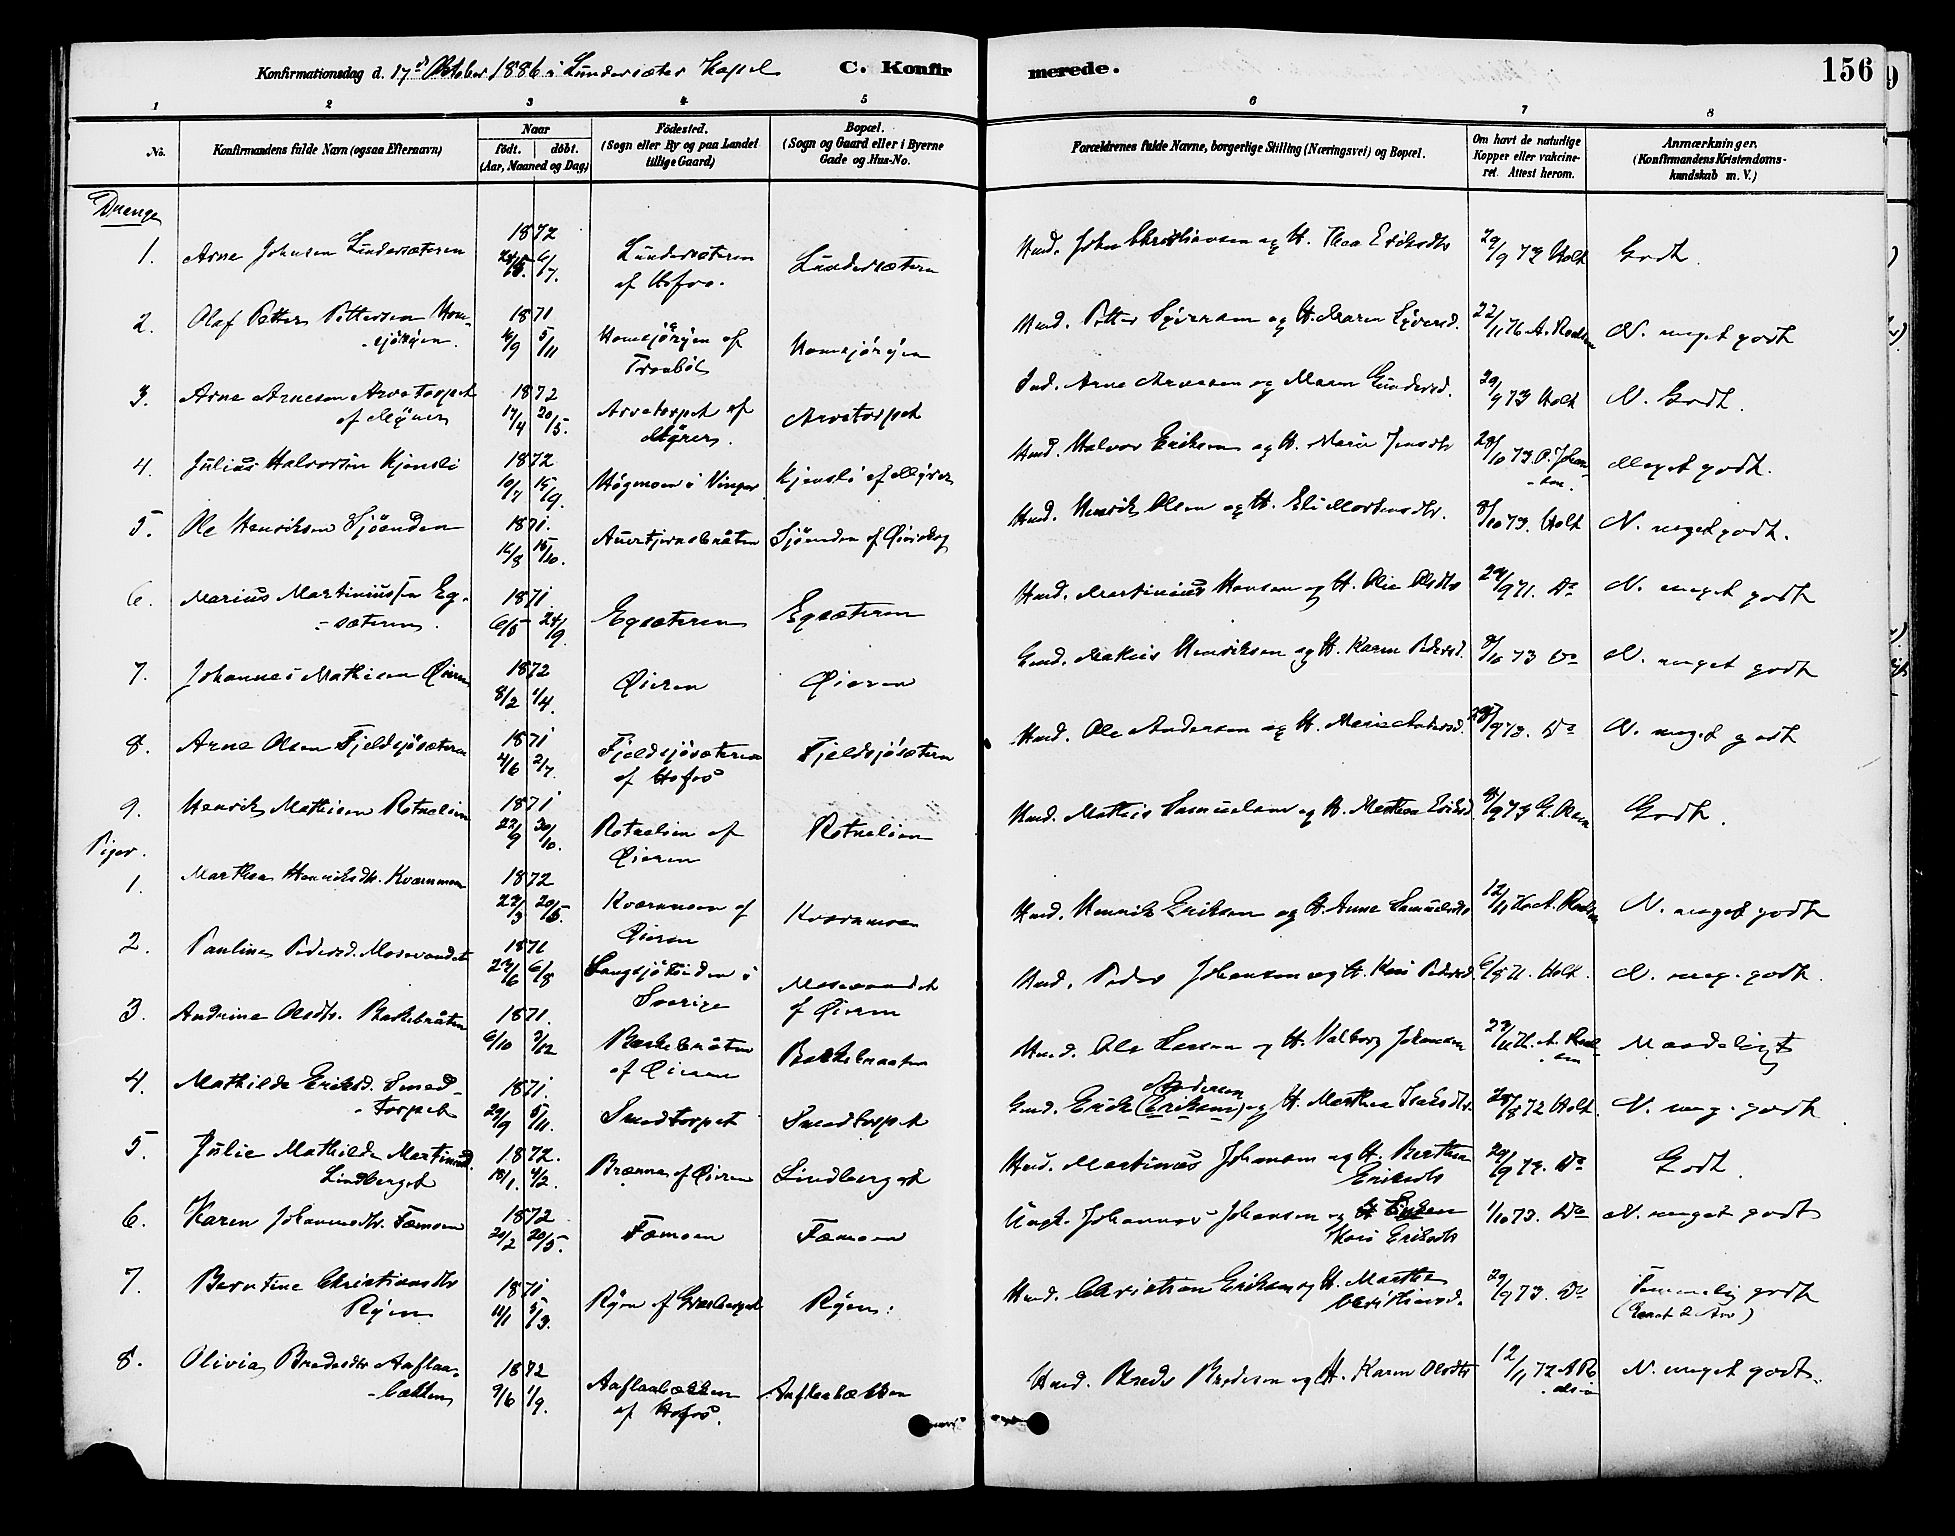 Konfirmationsdag d. 17d Oktober 1886 i Lundersæter Kapel C. Konfirmerede. 156
1 2 3 4 5 6 7 8
No. Konfirmandens fulde Navn (ogsaa Efternavn) Naar födt. döbt. (Aar, Maaned og Dag) Födested. (Sogn eller By og paa Landet tillige Gaard) Bopæl. (Sogn og Gaard eller i Byerne Gade og Hus-No. Forældrenes fulde Navne, borgerlige Stilling (Næringsvei) og Bopæl. Om havt de naturlige Kopper eller vakcineret. Attest herom. Anmærkninger. (Konfirmandens Kristendomskundskab m. V.)
Drenge
1. Arne Johnsen Lundersæteren 1872 6/7. Lundersæteren af Hofos. Lundersætern Hmd. John Christiansen og H. Thea Eriksdtr 29/9 73 Holt Godt.
2. Olaf Petter Pettersen Homsjörÿen. 1871 16/9 5/11 Homsjörÿen af Tronböl Homsjörÿen Hmd. Petter Syversen og H. Maren Syversd. 22/11 76 A. N. meget godt
3. Arne Arnesen Arvetorpet af Mÿrer 1872 17/4 20/5. Arvetorpet af Mÿrer. Arvetorpet Ind. Arne Arnesen og Maren Gundersd. 29/9 73 Holt N. Godt.
4. Julius Halvorsen Kjensli 1872 10/7 15/9. Högmoen i Vinger Kjensli af Mÿrer Hmd. Halvor Eriksen og H. Marie Jensdtr 28/10 73 P. Johansen. Meget godt.
5. Ole Henriksen Sjöenden 1871. 16/8 15/10. Auertjernsbråten Sjöenden af Hmd. Henrik Olsen og H. Eli Mortensdtr. 8/10 73. Holt N. meget godt.
6. Marius Martiniussen Egsæteren. 1871. 6/5 24/9. Egsæteren Egsæteren Hmd. Martinius Hansen og H. Olia Olsdtr 24/9 71. Do N. meget godt
7. Johannes Mathisen Öieren 1872 8/2 1/4. Öieren Öieren Gmd. Mathis Henriksen og H. Karen Pedersd. 8/10 73 Do N. meget godt
8. Arne Olsen Fjeldsjösæteren 1871 4/6 2/7. Fjeldsjösæteren af Hofos Fjeldsjösætern Hmd. Ole Andersen og H. Marie 28/9 73. Do N. meget godt
9. Henrik Mathisen Rotnelien 1871 22/9 30/10. Rotnelien af Öieren Rotnelien Hmd. Mathis Samuelsen og H. Marthea Eriksd. 8/9 73 G. Olsen Godt.
Piger.
1. Marthea Henriksdtr. Kværnmoen 1872 22/3 20/5. Kværnmoen af Öieren Kværnmoen Hmd. Henrik Eriksen og H. Anne Samuelsdtr 12/11 N. meget godt
2. Pauline Pedersd. Mosevandet 1871 6/8 Langsjötiden i Sverige Mosevandet af Öieren Hmd. Peder Johansen og H. Kari Pedersd. 6/8 71. Holt. N. meg. godt.
3. Andrine Olsdtr. Baskebråten 1871. 6/10 3/12 Baskebråten af Öieren Baskebraaten Hmd. Ole Larsen og H. Valborg Johansen Maadeligt
4. Mathilde Eriksd. Smedtorpet 1871. 29/9 5/11. Smedtorpet Smedtorpet Gmd. Erik (Eriksen) Andersen og H. Marthea Isaksdtr. 28/8 72 Holt. N. meg. godt
5. Julie Mathilde Martinusd. Lindberget 1872. 18/1. 4/2. Brænna af Öieren Lindberget Hmd. Martinus Johansen og H. Berthea Eriksdtr 29/9 73. Do Godt.
6. Karen Johannesdtr. Fæmoen 1872 20/2 20/5. Fæmoen Fæmoen Ungk. Johannes Johansen og Kari Eriksdtr 1/10 73. Do N. meget godt
7. Berntine Christiansdtr Rÿen 1871 11/1 5/3. Rÿen af Grasberget Rÿen: Hmd. Christian Eriksen og H. Marthea Christiansd. 29/9 73. Do Temmelig godt (Læst 2 Aar)
8. Olivia Bredesdtr Aaflaabækken 1872 9/6 1/9. Aaflaabækken af Hofos. Aaflaabækken Hmd. Brede Bredesen og H. Karen Olsdtr 12/11 72 N. meget godt.